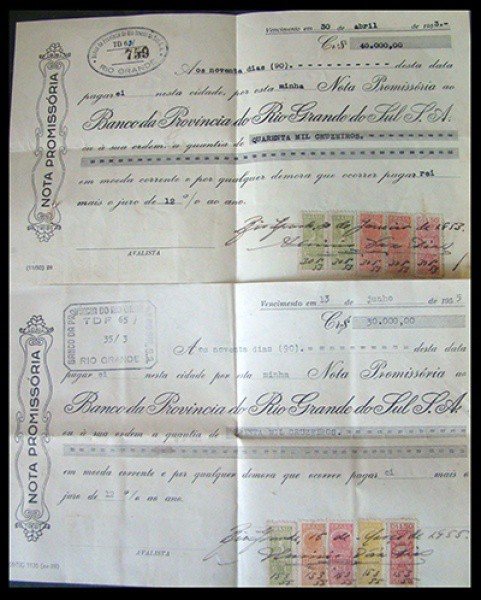 Vencimento em 30 de abril de 1953.-
Banco da Província do Rio Grande do Sul S.A.
TD 63/
759
RIO GRANDE
Cr$ 40.000,00
NOTA PROMISSÓRIA
Aos noventa dias (90).- desta data
pagarei nesta cidade, por esta minha Nota Promissória ao
Banco da Provincia do Rio Grande do Sul S.A.
ou à sua ordem, a quantia de QUARENTA MIL CRUZEIROS.
em moeda corrente e por qualquer demora que ocorrer pagarei
mais o juro de 12 º/o ao ano.
Rio Grande, 30 de Janeiro de 1953
AVALISTA
Vencimento em 13 de junho de 1955
TDP 65/
35/3
RIO GRANDE
Cr$ 30.000,00
NOTA PROMISSÓRIA
Aos noventa dias (90).- desta data
pagarei nesta cidade por esta minha Nota Promissória ao
Banco da Provincia do Rio Grande do Sul S.A.
ou à sua ordem a quantia de TRINTA MIL CRUZEIROS.
em moeda corrente e por qualquer demora que ocorrer pagarei mais o
juro de 12 º/o ao ano.
Rio Grande, 15 de Março de 1955
AVALISTA